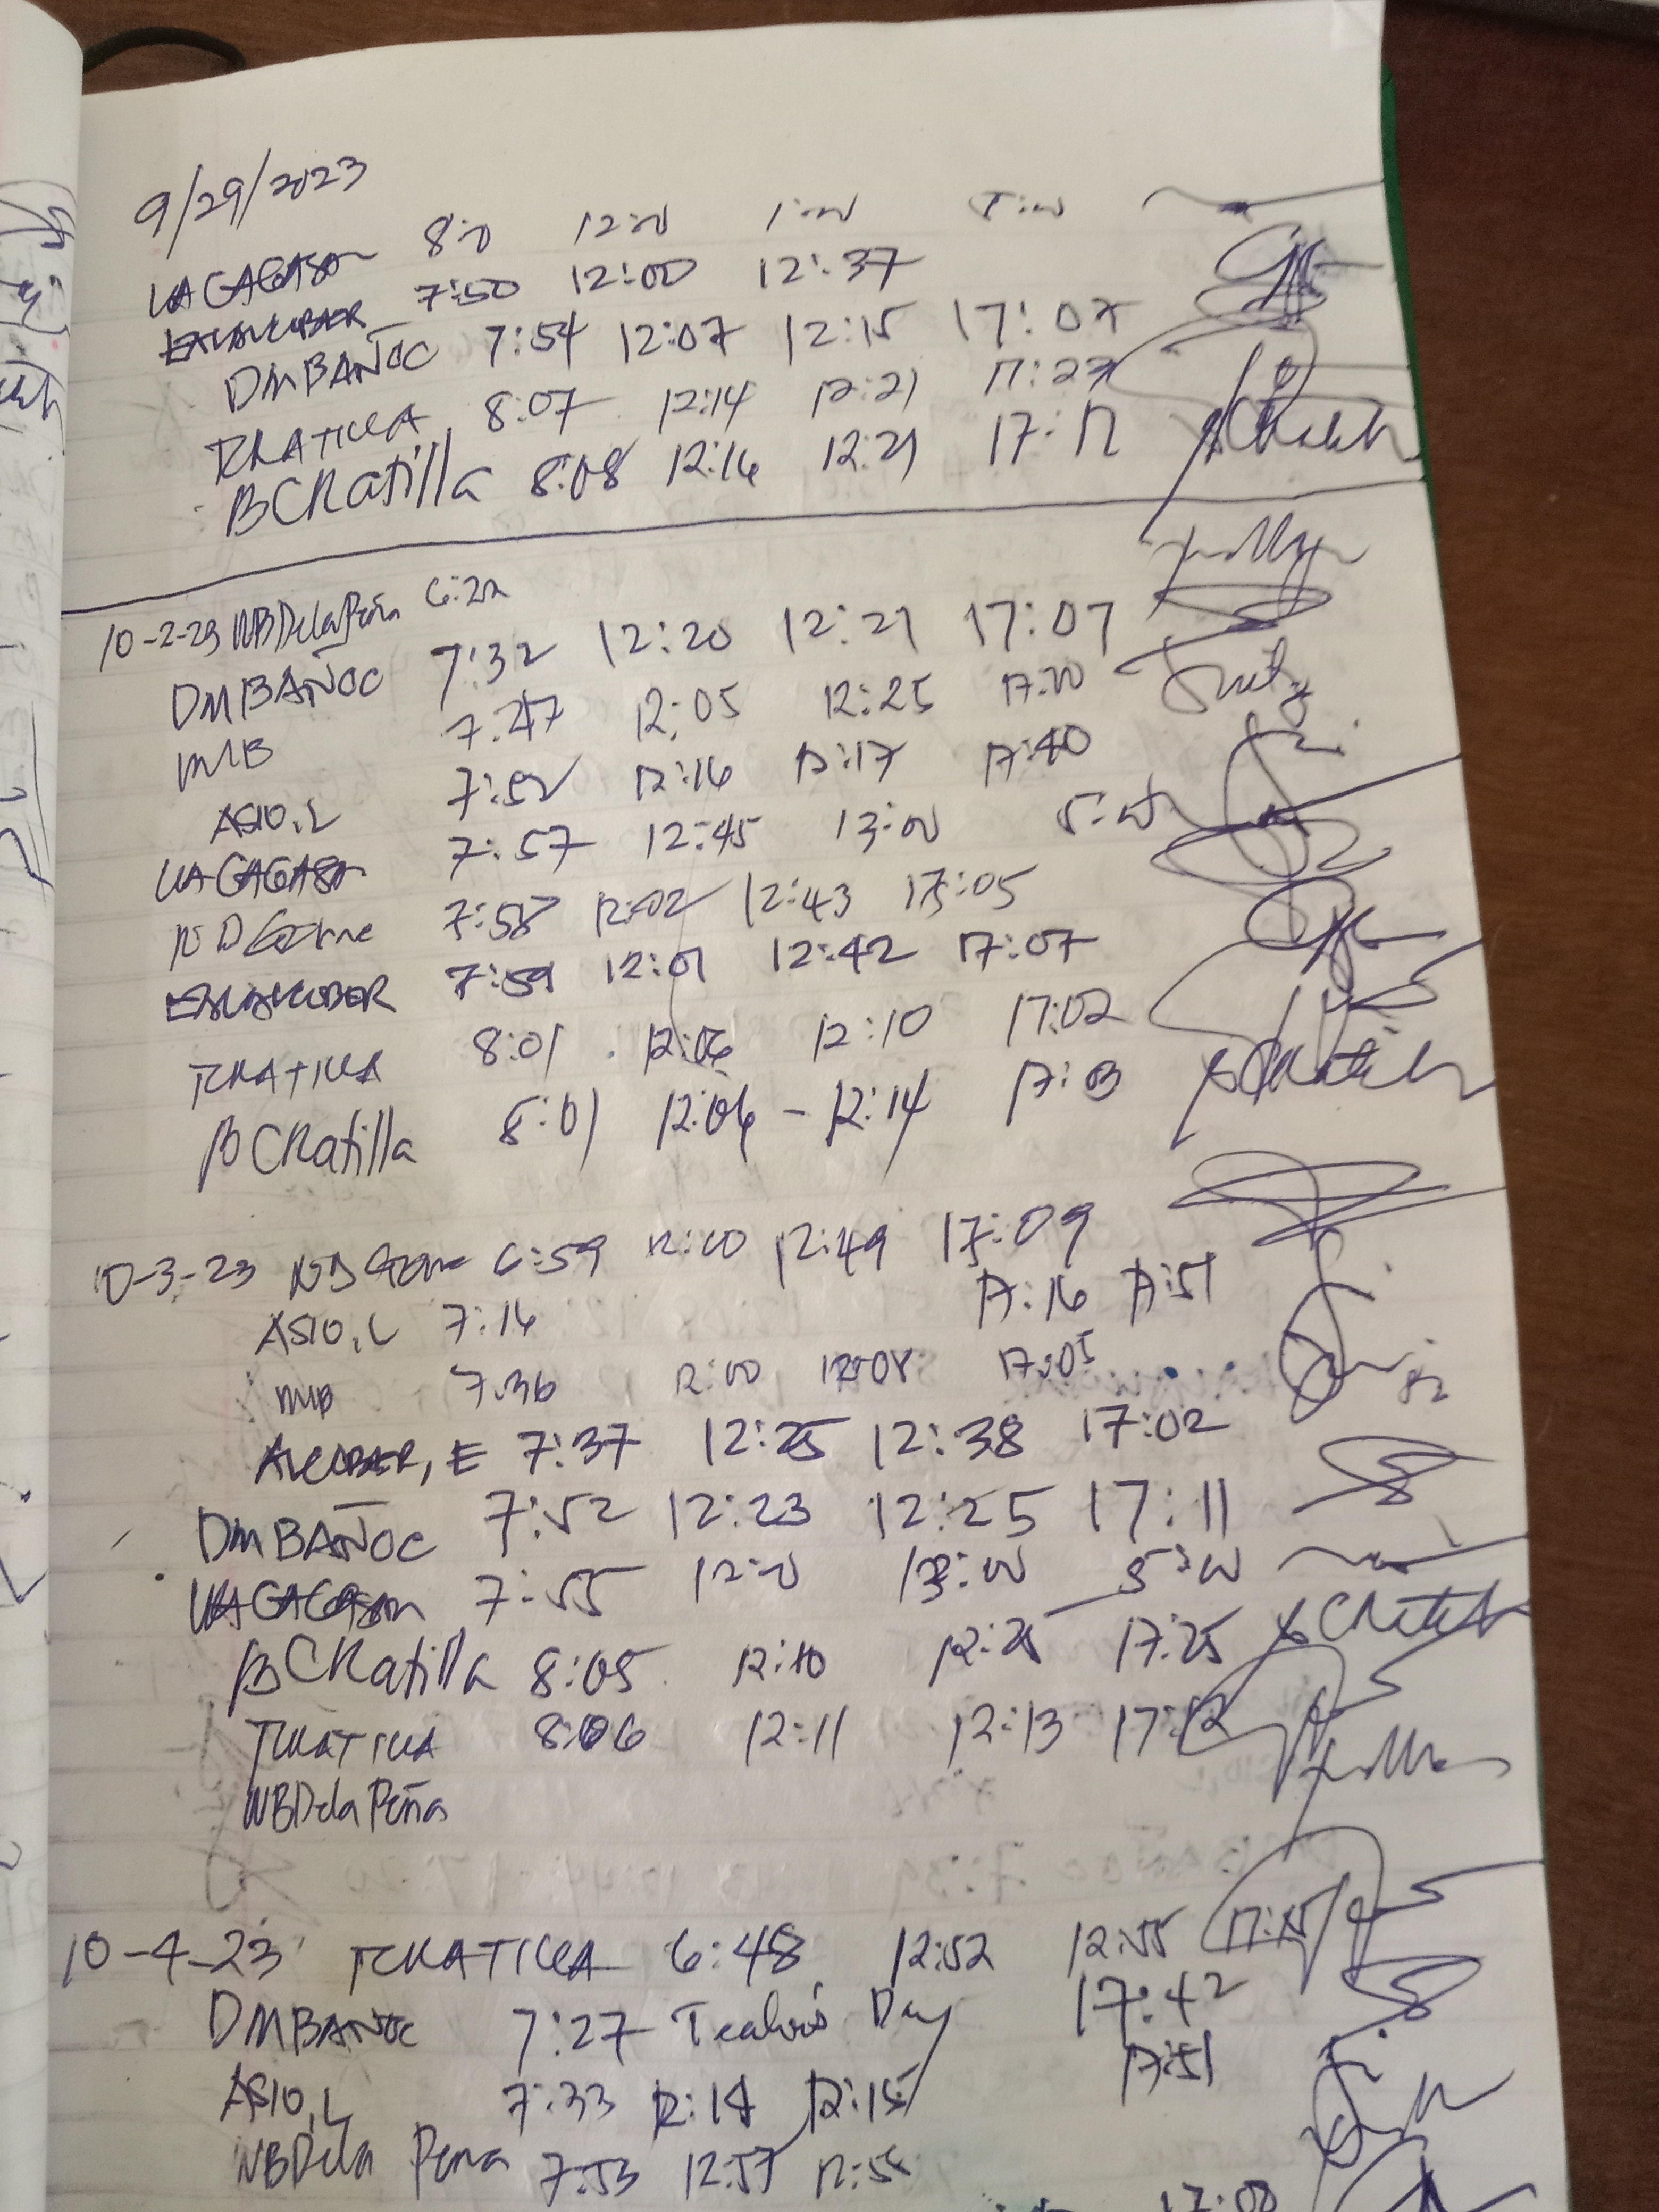 9/29/2023
8:00 12:00 1:00 5:00
7:50 12:00 12:37
DMBAÑOC 7:54 12:07 12:15 17:07
TCRATILLA 8:07 12:14 12:21 17:27
BCRatilla 8:08 12:16 12:21 17:17
10-2-23 NBDelaPeña 6:22
DMBAÑOC 7:32 12:20 12:21 17:07
MLB 7:47 12:05 12:25 17:00
ASIO, L 7:52 12:16 12:17 17:40
7:57 12:45 13:00 5:00
7:58 12:02 12:43 17:05
7:59 12:01 12:42 17:07
TCRATILLA 8:01 12:06 12:10 17:02
BCRatilla 8:01 12:06 - 12:14 17:03
10-3-23 6:59 12:00 12:49 17:09
ASIO, L 7:16 17:16 17:51
MLB 7:36 12:00 12:08 17:05
ALCOBER, E 7:37 12:25 12:38 17:02
DMBAÑOC 7:52 12:23 12:25 17:11
7:55 12:00 13:00 5:00
BCRatilla 8:05 12:10 12:25 17:25
TCRATILLA 8:06 12:11 12:13 17:12
NBDela Peña
10-4-23 TCRATILLA 6:48 12:52 12:55 17:15
DMBAÑOC 7:27 Day 17:42
ASIO, L 7:33 12:14 12:15 17:51
NBDela Pena 7:53 12:57 12:58
17:00